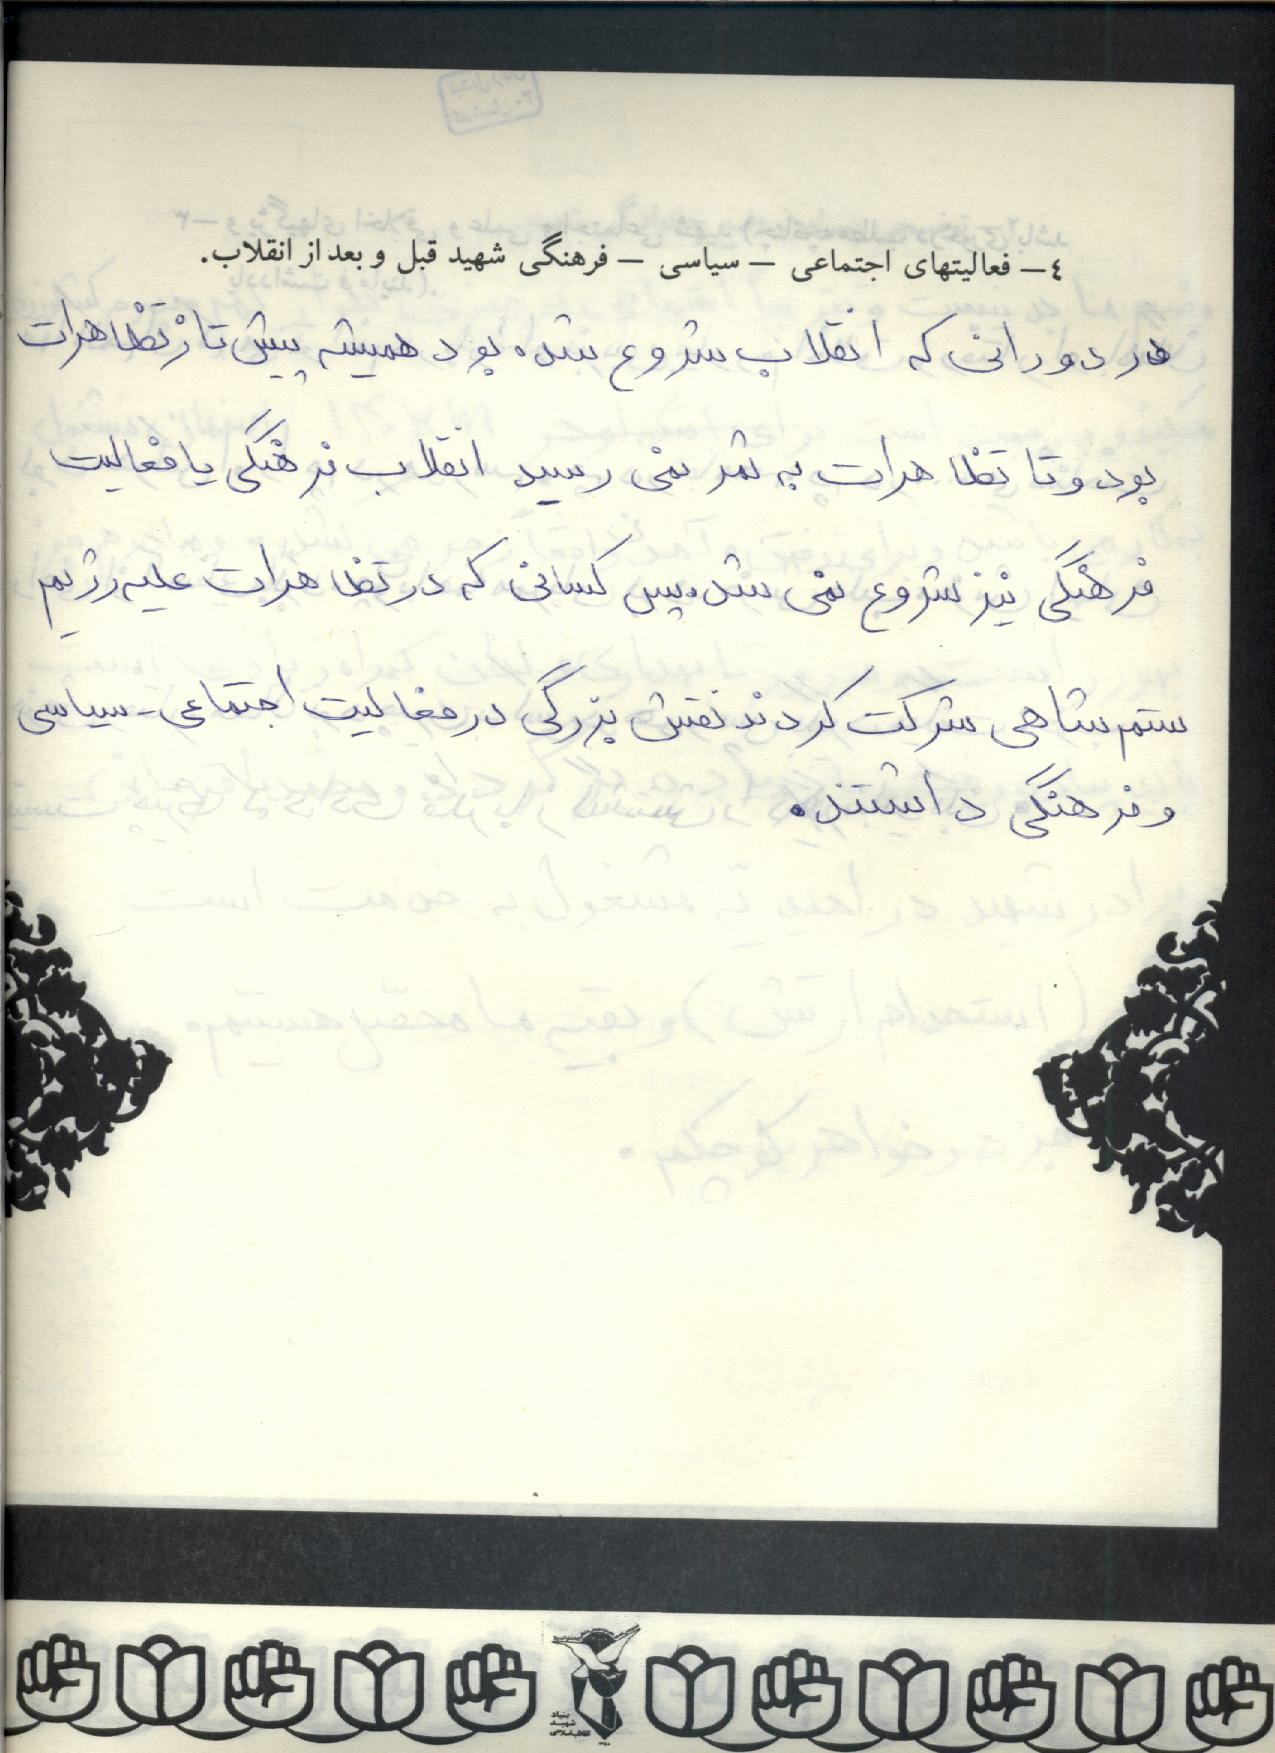 ٤– فعالیتهای اجتماعی – سیاسی – فرهنگی شهید قبل و بعد از انقلاب.
در دورانی که انقلاب شروع شده بود همیشه پیش تاز تظاهرات
بود و تا تظاهرات به ثمر نمی رسید انقلاب فرهنگی یا فعالیت
فرهنگی نیز شروع نمی شد. پس کسانی که در تظاهرات علیه رژیم
ستم شاهی شرکت کردند نقش بزرگی در فعالیت اجتماعی - سیاسی
و فرهنگی داشتند.
بنیاد
شهید
انقلاب اسلامی